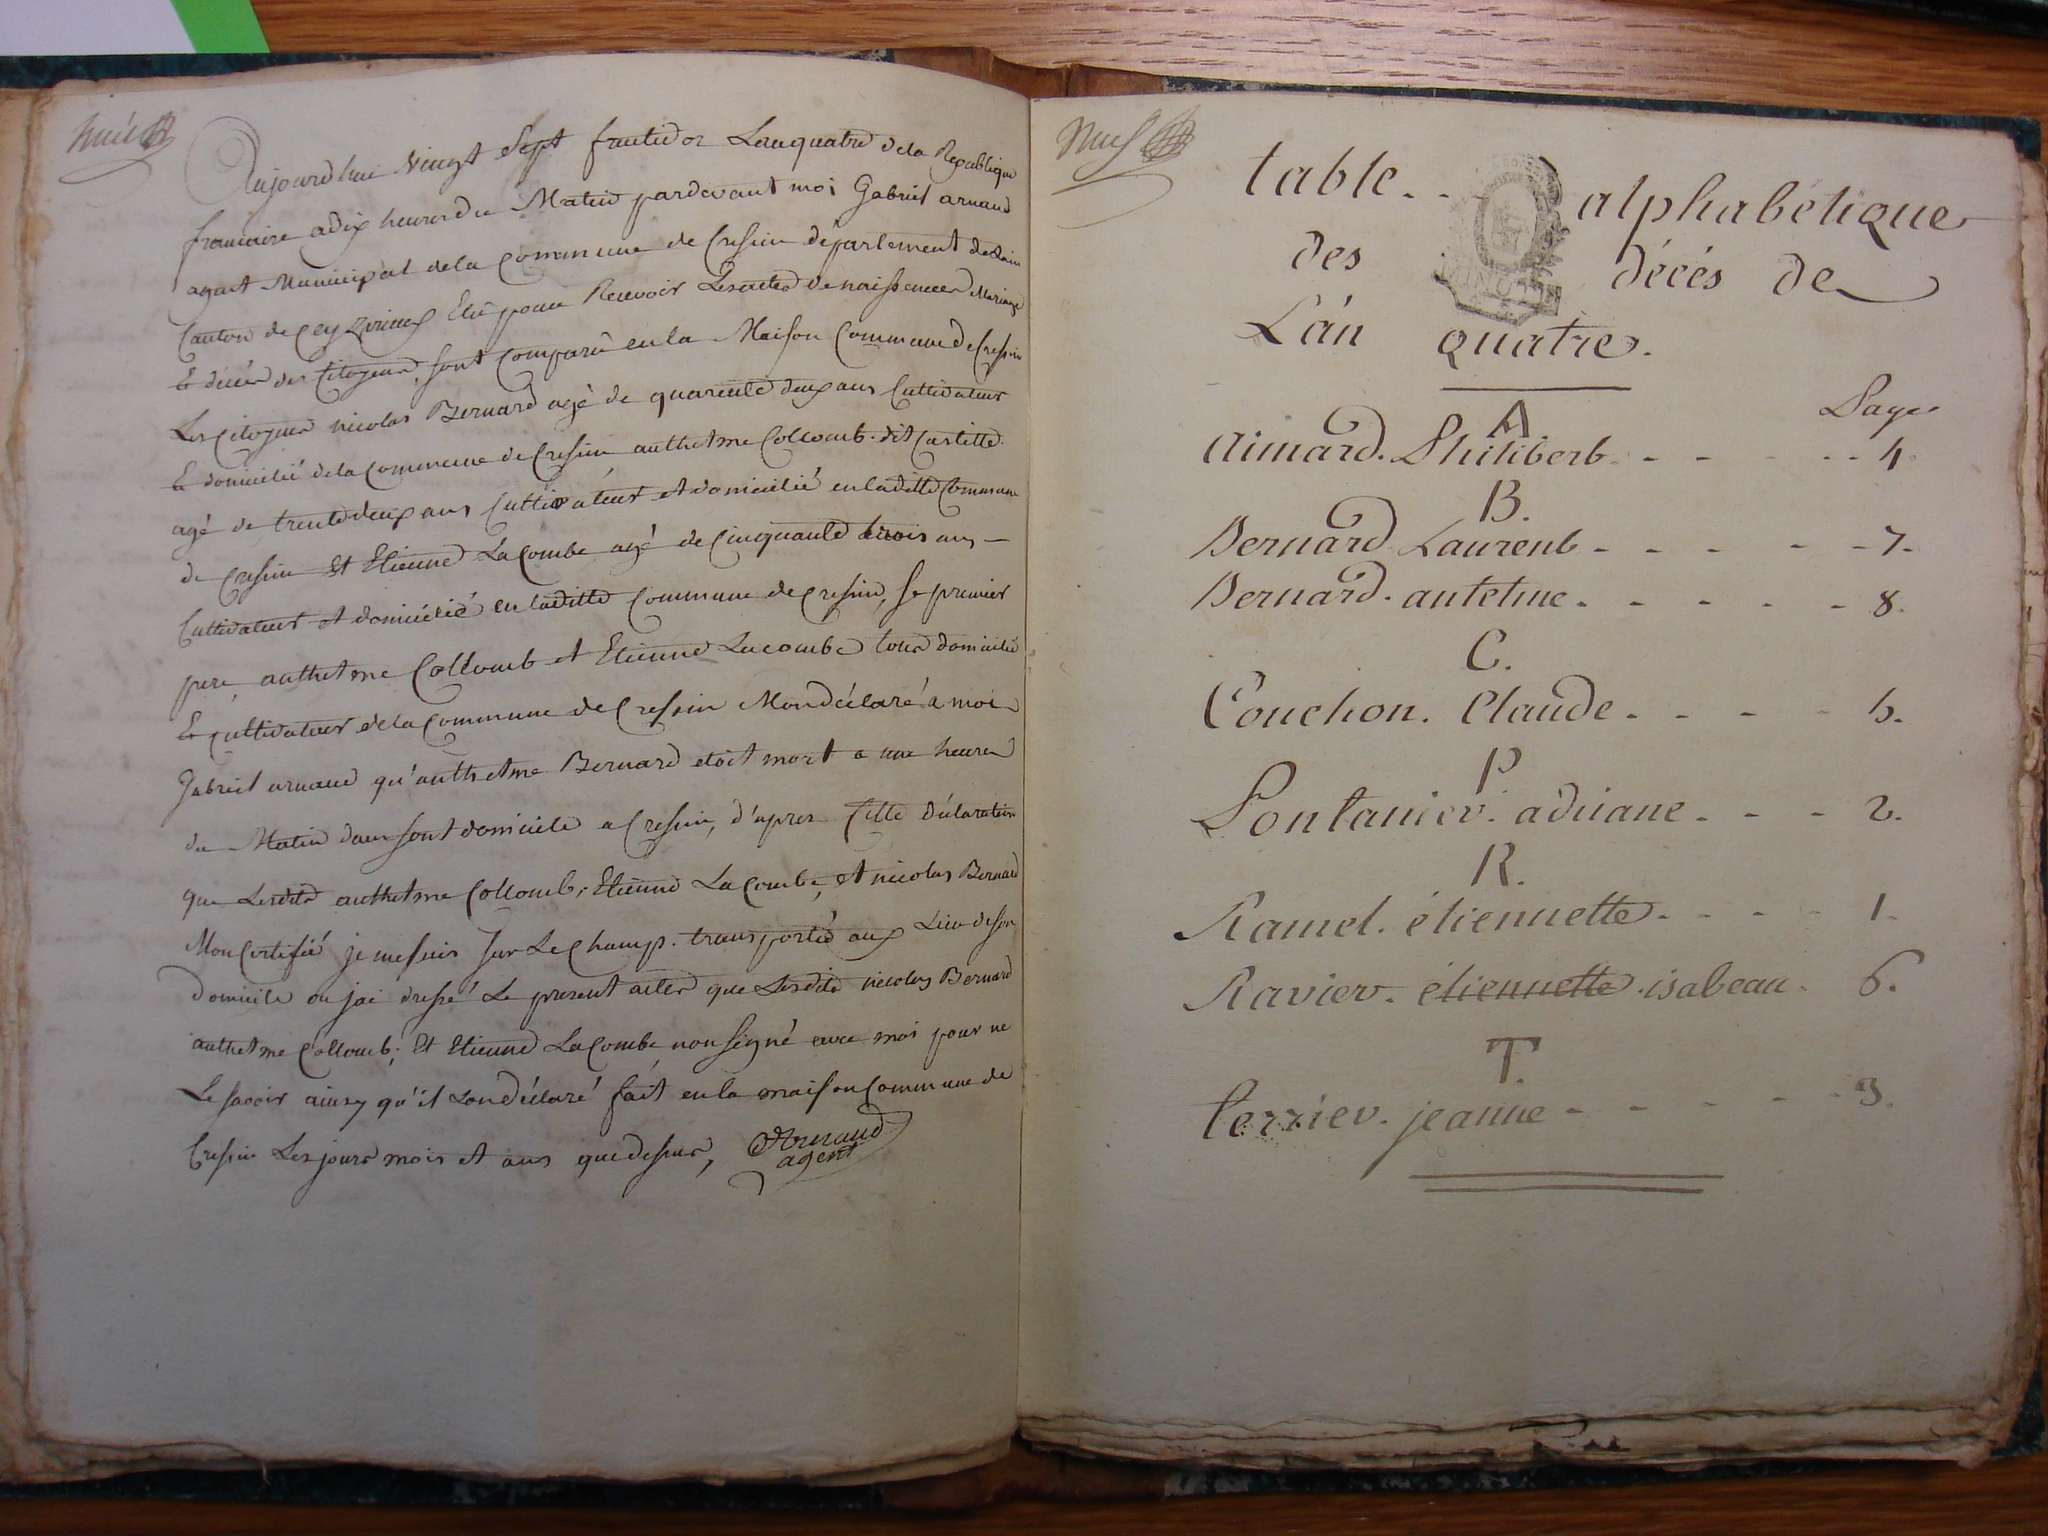 huit
Aujourd'hui vingt sept fructidor Lan quatre de la Republique
francaise a dix heures du Matin pardevant moi Gabriel arnaud
agent Municipal dela Commune de Cressin departement de Lain
Canton de Ceyzerieux Elu pour Recevoir Les actes de naissances Mariages
Et décès des Citoyens, sont Comparu en la Maison Commune de Cressin
Les Citoyens nicolas Bernard agé de quarente deux ans Cultivateur
Et domicilié dela Commune de Cressin anthetme Collomb dit
agé de trente deux ans Cultivateur et domicilié en laditte Commune
de Cressin Et Etienne LaCombe agé de Cinquante trois ans
Cultivateur et domicilié en laditte Commune de Cressin, Le premier
pere, anthetme Collomb et Etienne Lacombe tous domicilié
Et Cultivateur dela Commune de Cressin Mon déclaré a moi
Gabriel arnaud qu'anthetme Bernard etoit mort a une heure
du Matin dans sont domicile a Cressin, d'apres Cette Déclaration
que Lesdits anthetme Collomb, Etienne LaCombe, et nicolas Bernard
Mon Certifié je me suis sur Le Champ transporté aux Lieu de son
domicile ou jai dressé Le present actes que Lesdits nicolas Bernard
anthetme Collomb, Et Etienne LaCombe non signé avec moi pour ne
Le savoir ainsy qu'il Lon déclaré fait en la maison Commune de
Cressin Les jours mois et ans que dessus, Arnaud
agent
neuf
table alphabétique
des décés de
L'an quatre.
Page
A
aimard. Philibert 4
B.
Bernard Laurent 7.
Bernard. antelme 8.
C.
Couchon. Claude 5.
P
Pontanier. adriane 2.
R.
Ramel. étiennette 1.
Ravier. étiennette isabeau 6.
T.
terrier. jeanne 3.